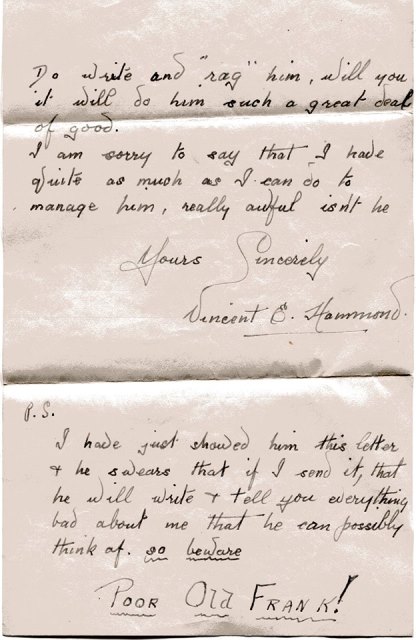 Do write and "rag" him, will you
it will do him such a great deal
of good.
I am sorry to say that I have
quite as much as I can do to
manage him, really awful isn't he
Yours Sincerely
Vincent E. Hammond.
P.S.
I have just showed him this letter
& he swears that if I send it, that
he will write & tell you everything
bad about me that he can possibly
think of. so beware
Poor Old Frank!